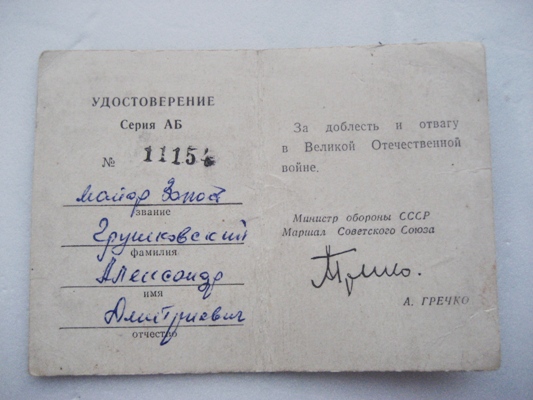 УДОСТОВЕРЕНИЕ
Серия АБ
№ 11154
майор
звание
Грушковский
фамилия
Александр
имя
Дмитриевич
отчество
За доблесть и отвагу
в Великой Отечественной
войне.
Министр обороны СССР
Маршал Советского Союза
А. ГРЕЧКО